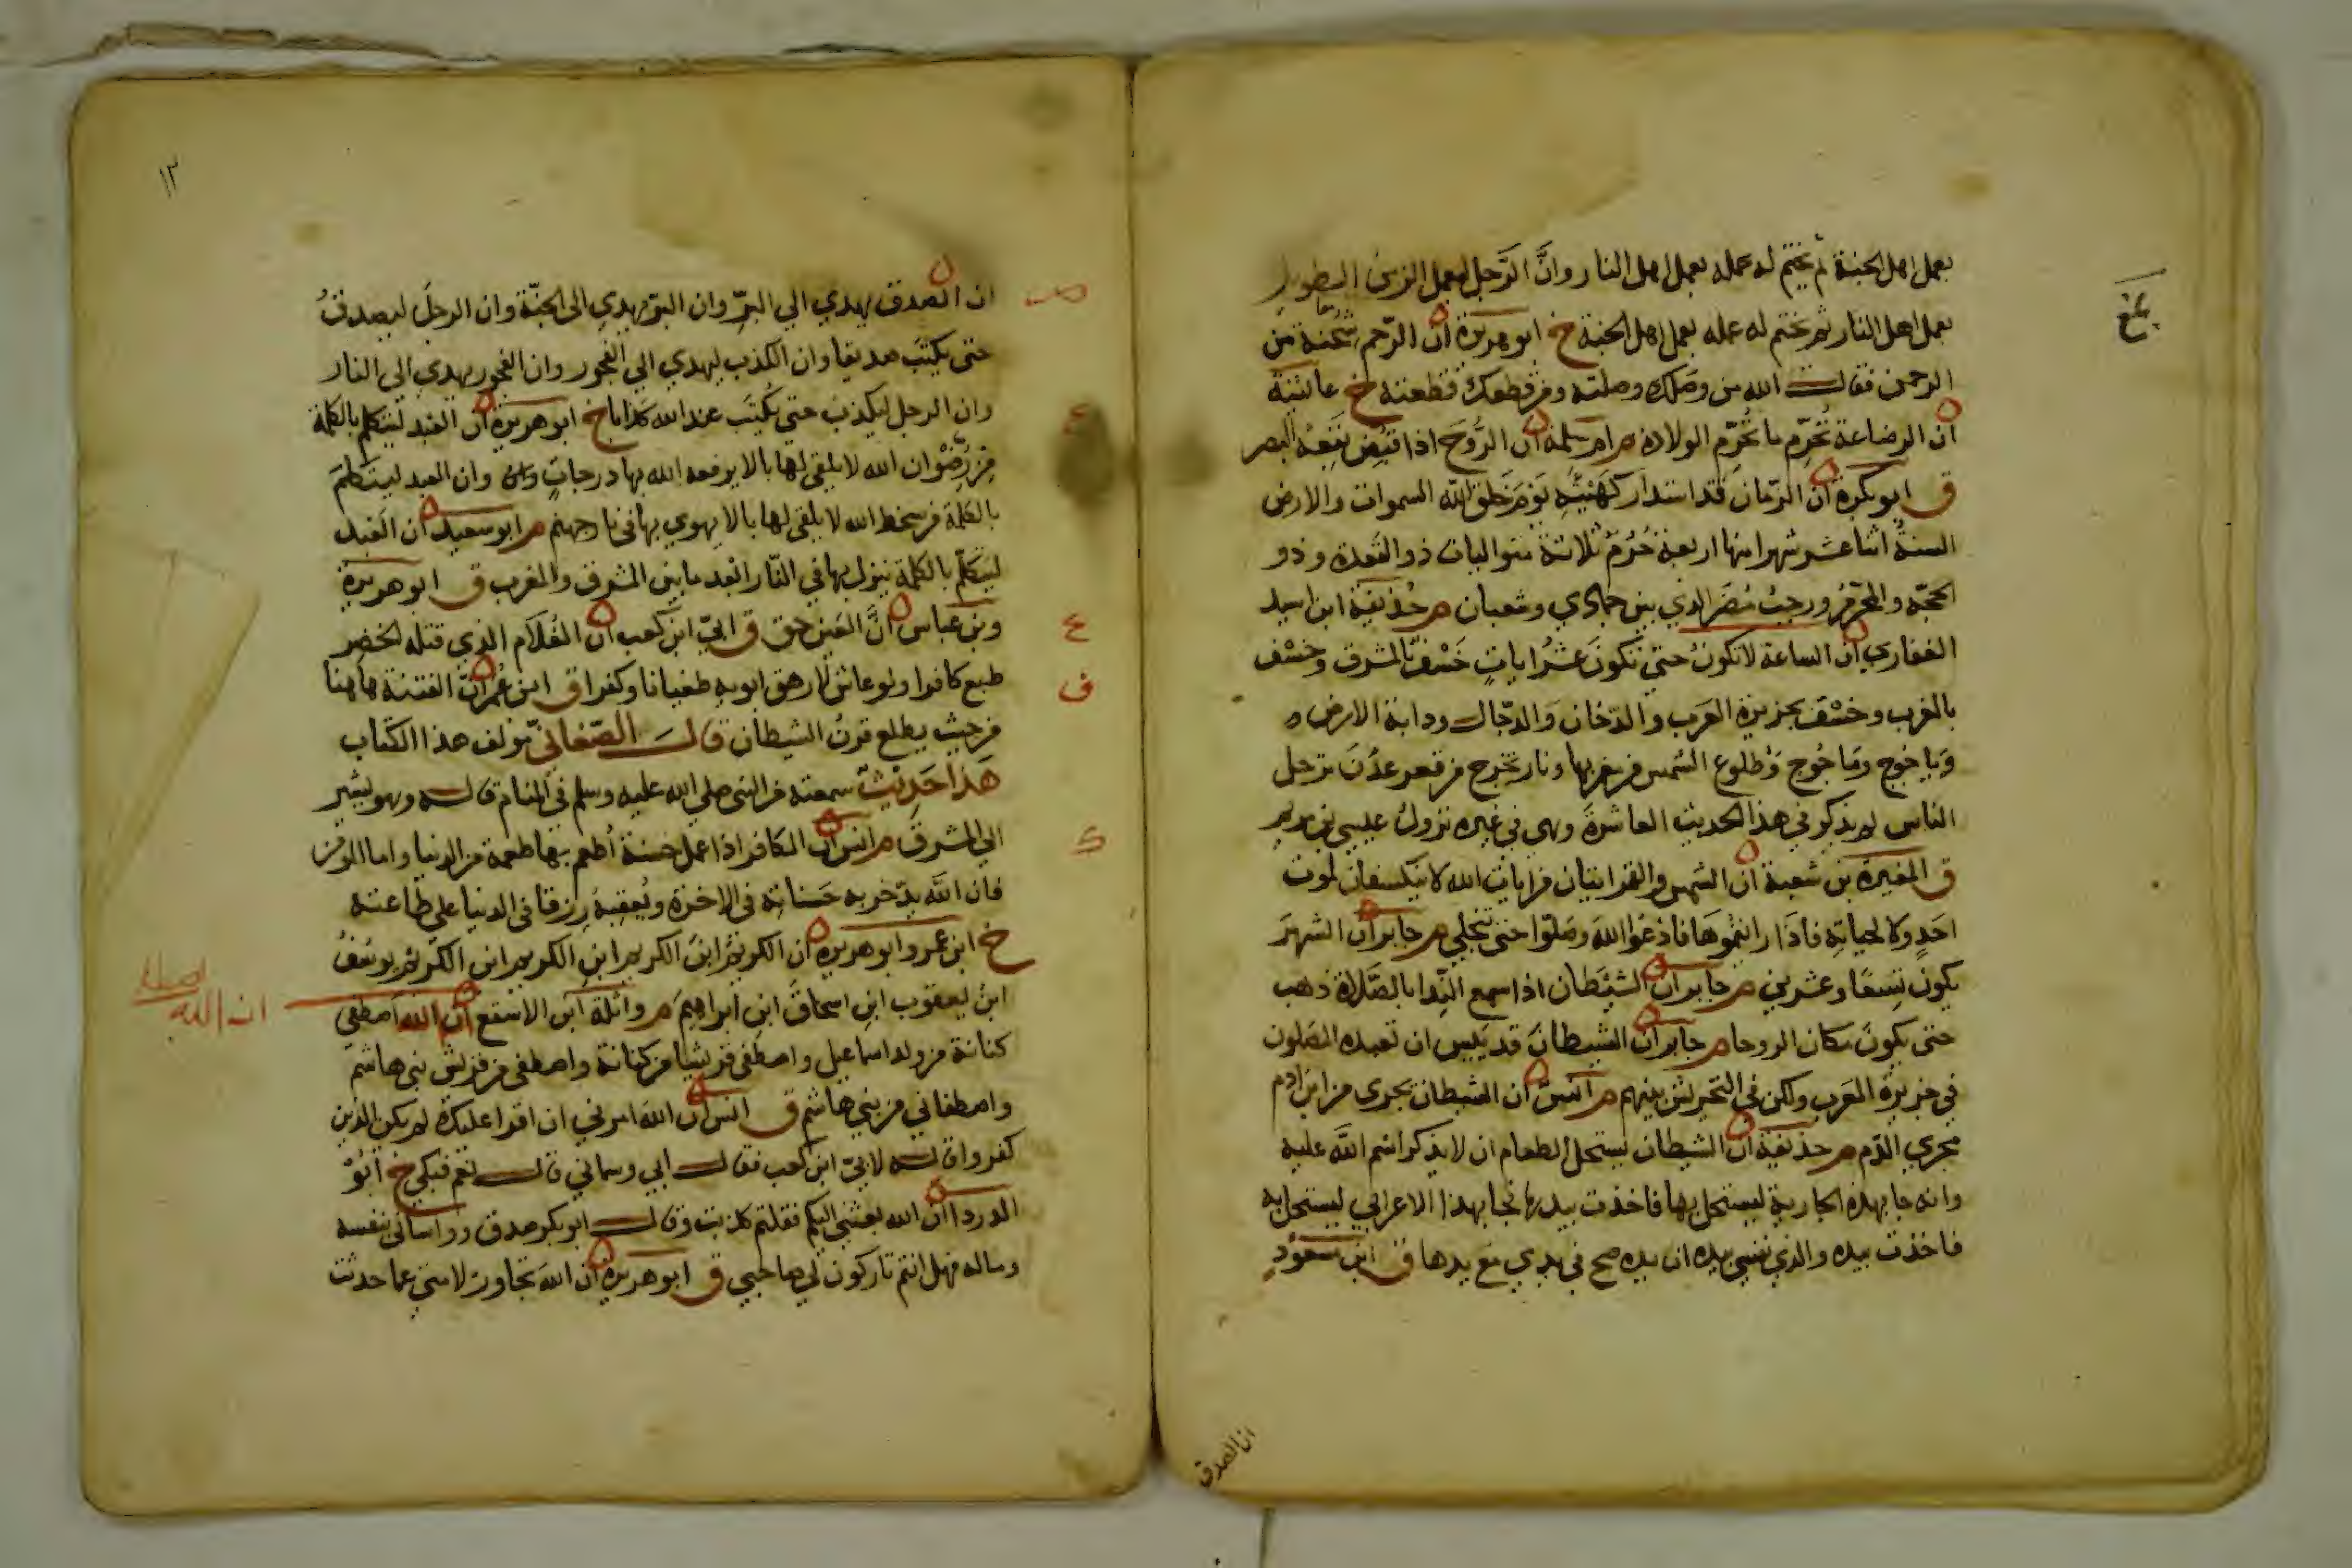 بعمل اهل الجنة ثم يختم له عمله بعمل اهل النار وانَّ الرَّجل ليعمل الزمن الطويل
بعمل اهل النار ثم يختم له عمله بعمل اهل الجنة خ ابو هريرة ان الرّحم شُجنة من
الرحمن فقال الله من وصَلك وصلته ومن قطعك قطعته خ عائشة
ان الرضاعة تُحرّم ما تُحرّم الولادة م ام سلمة ان الرُّوحَ اذا قبُض تَبِعهُ البصر
ق ابو بكرة ان الزّمان قد استدار كهَيْئته يَوْم خلق الله السموات والارض
السنةُ اثنا عشر شهرا منها اربعة حُرُمٌ ثلاثة متواليات ذو القعدة وذو
الحجّة والمحرّم ورجبُ مُضَر الذي بين جمادي وشعبان م حُذيفة ابن اسيد
الغفاري ان الساعة لا تكونُ حتي تكونَ عشرُ اياتٍ خَسْف بالمشرق وخسْف
بالمغرب وخسْف بجزيرة العَرب والدّخان والدجّال ودابة الارض و
وياجوج وماجُوج وطلوع الشمس من مغربها ونار تخرج من قعر عدْنَ ترحل
الناس لم يذكر في هذا الحديث العاشرةَ وهي في غيره نزولُ عيسي بن مريم
ق المغيرة بن شعبة ان الشمس والقمر ايتان من ايات الله لا ينكسفان لموت
احَدٍ ولا لحياته فاذَا رايتموهَا فادْعُوا الله وصَلّوا حتى تنجلي م جابر ان الشهرَ
يكون تِسعًا وعشرين م جابر ان الشيْطان اذا سمع النّدا بالصَّلاة ذهب
حتى يكونَ مكان الروحا م جابر ان الشيطانَ قد يَئِس ان تعبده المصَلون
في جزيرة العَرب ولكن في التحريش بينهم م انسٌ ان الشيطان يجرى من ابن ادم
مجري الدّم م حذيفة ان الشيطان يستحل الطعام ان لا يذكر اسْم الله عليه
وانه جا بهذه الجارية ليستحل بها فاخذت بيدها فجا بهذا الاعرابي ليستحل به
فاخذت بيده والذي نفسي بيده ان يده صح في يدي مع يدها ق ابن مسعُود
ان الصدق
١٢
ان الصدق يهدي الي البرّ وان البرّ يهدي الى الجنّة وان الرجلَ ليصدقُ
حتى يكتبَ صديقا وان الكذب يهدي الي الفجور وان الفجور يهدي الي النار
وان الرجل ليكذب حتي يُكتَب عند الله كذابا خ ابو هريرة ان العبد ليتكلم بالكلمة
من رِضْوان الله لا يلقي لها بالا يرفعه الله بها درجاتٍ وان العبد ليتكلم
بالكلمة من سخط الله لا يلقي لها بالا يهوي بها في نار جهنم م ابو سعيد ان العَبد
ليتكلّم بالكلمة ينزل بها في النّار ابْعد ما بين المشرق والمغرب ق ابو هريرة
وبن عباس انَّ العَين حق ق ابيّ ابن كعب ان الغُلَام الذي قتله الخضر
طبع كافرا ولو عاش لارهق ابويه طغيانا وكفرا ق ابن عُمر انّ الفتنة هاهنا
من حيث يطلع قرنُ الشيطان قال الصّغاني مؤلف هذا الكتاب
هَذا حَدِيثٌ سمعته من النبي صلي الله عليه وسلم في المنام قاله وهو يشير
الي المشرق م انس ان الكافر اذا عمل حسنة أطعم بها طعمة من الدنيا واما المومن
فان اللَّه يدّخر له حَسَناته في الاخرة ويُعقِبهُ رِزقا في الدنيا علي طاعته
خ ابن عمر وابو هريره ان الكريمَ ابنَ الكريم ابنِ الكريم ابن الكريم يوسُفُ
ابنُ يعقوب ابن اسحاقَ ابنِ ابراهيمَ م واثلة ابن الاسقع ان الله اصطفي
ان الله
كنانة من ولد اسماعيل واصطفي قريشا من كنانة واصطفى من قريش بني هاشم
واصطفاني من بني هاشم ق انس ان الله امرني ان اقرا عليك لم يكن الذين
كفروا قاله لابيّ ابن كعب فقال ابي وسماني قال نعم فبكي خ ابُوْ
الدردا ان الله بعثني اليكم فقلتم كذبت وقال ابو بكر صدق وواساني بنفسه
وماله فهل انتم تاركون لي صاحبي ق ابو هريره ان الله تجاوز لامتي عما حدثت